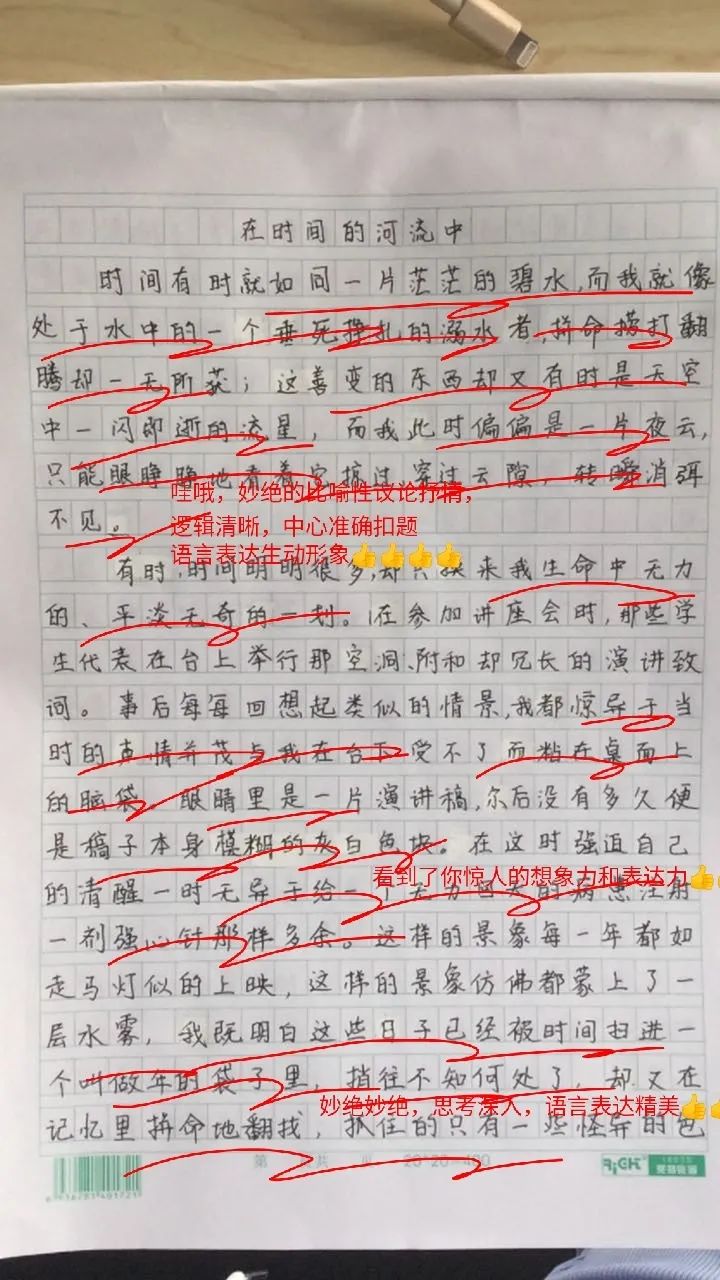 在时间的河流中
时间有时就如同一片茫茫的碧水,而我就像
处于水中的一个垂死挣扎的溺水者,拼命捞打翻
腾却一无所获；这善变的东西却又有时是天空
中一闪即逝的流星，而我此时偏偏是一片夜云,
只能眼睁睁地看着它掠过,穿过云隙，转瞬消弭
哇哦，妙绝的比喻性议论抒情，
不见。
逻辑清晰，中心准确扣题
语言表达生动形象👍👍👍👍
有时,时间明明很多,却只换来我生命中无力
的、平淡无奇的一划。在参加讲座会时,那些学
生代表在台上举行那空洞、附和却冗长的演讲致
词。事后每每回想起类似的情景,我都惊异于当
时的声情并茂与我在台下受不了而粘在桌面上
的脑袋。眼睛里是一片演讲稿,尔后没有多久便
是稿子本身模糊的灰白色块。在这时强迫自己
看到了你惊人的想象力和表达力👍
的清醒一时无异于给一个无力回天的病患注射
一剂强心针那样多余。这样的景象每一年都如
走马灯似的上映，这样的景象仿佛都蒙上了一
层水雾，我既明白这些日子已经被时间扫进一
个叫做年的袋子里，捎往不知何处了，却又在
妙绝妙绝，思考深入，语言表达精美👍
记忆里拼命地翻找，抓住的只有一些怪异的色
20*20=400
RiGHT